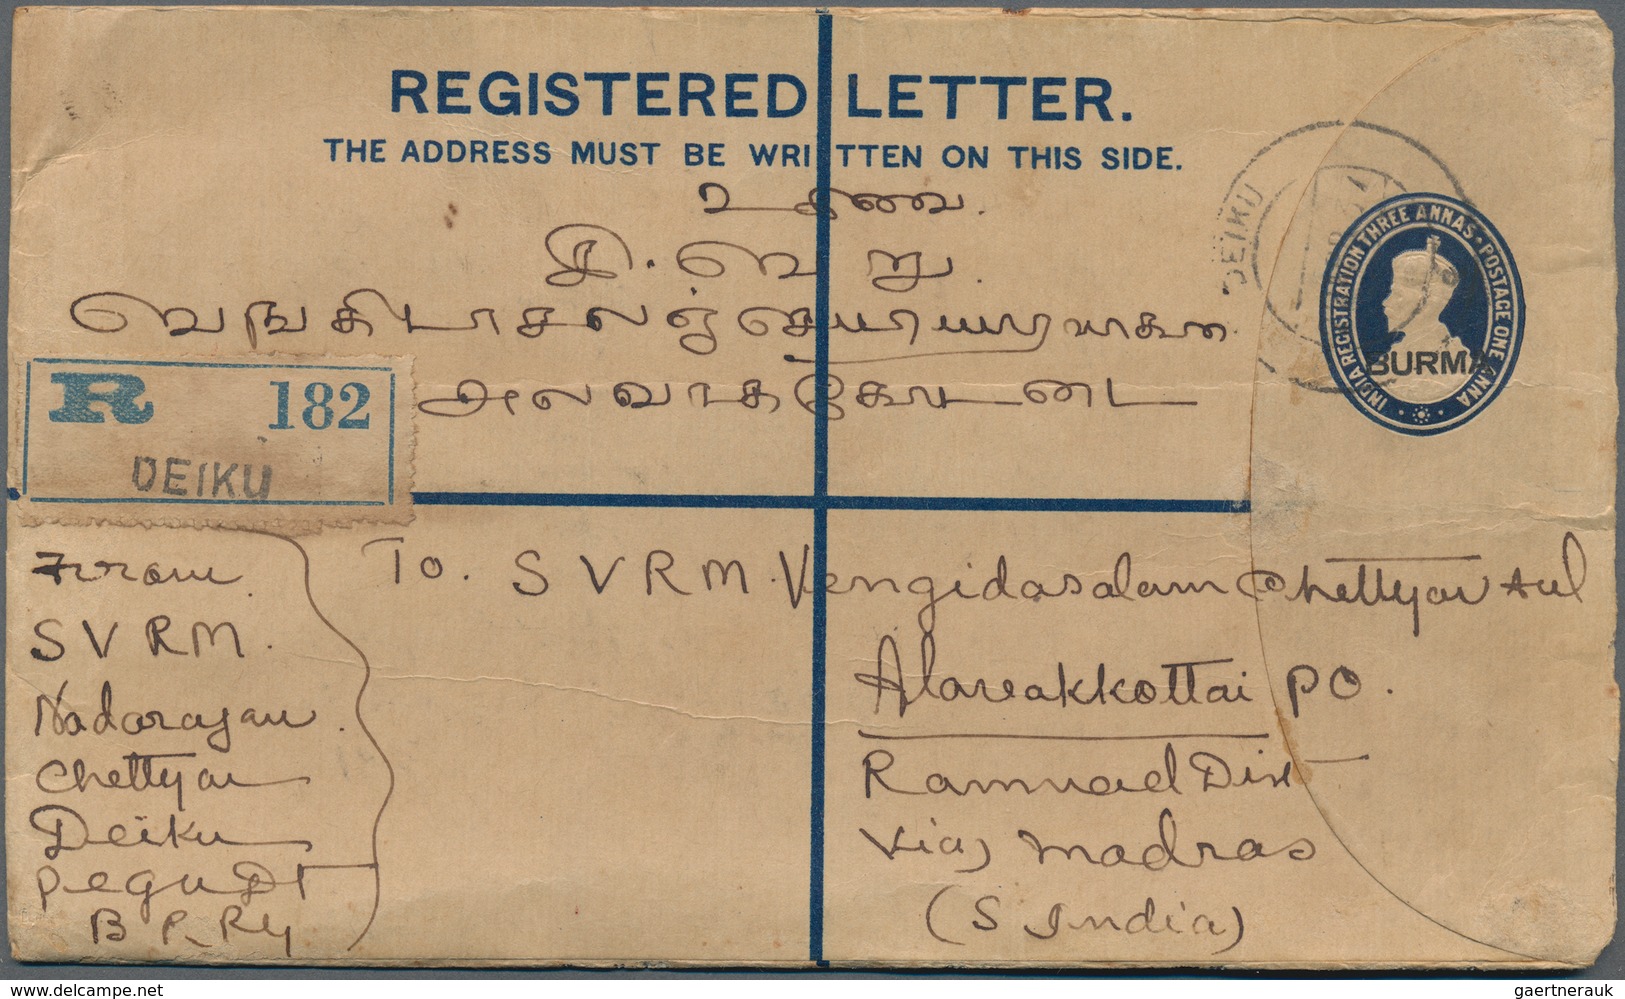 REGISTERED LETTER.
THE ADDRESS MUST BE WRITTEN ON THIS SIDE.
உ சிவமை.
இ. வெ று
வெங்கிடாசலஞ்செட்டியாரவாகள
அலவாககோடடை
DEIKU
INDIA REGISTRATION THREE ANNAS · POSTAGE ONE ANNA
BURMA
R 182
DEIKU
From
S V R M.
Nadarajan
Chettyar
Deiku
Pegu Dt
B P. Rly
To. S V R M. Vengidasalam Chettyar Avl
Alavakkottai PO.
Ramnad Dist
Via, Madras
(S India)
delcampe.net
gaertnerauk